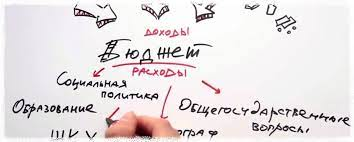 ДОХОДЫ
Бюджет
РАСХОДЫ
Социальная
политика
Образование
Общегосударственные
вопросы